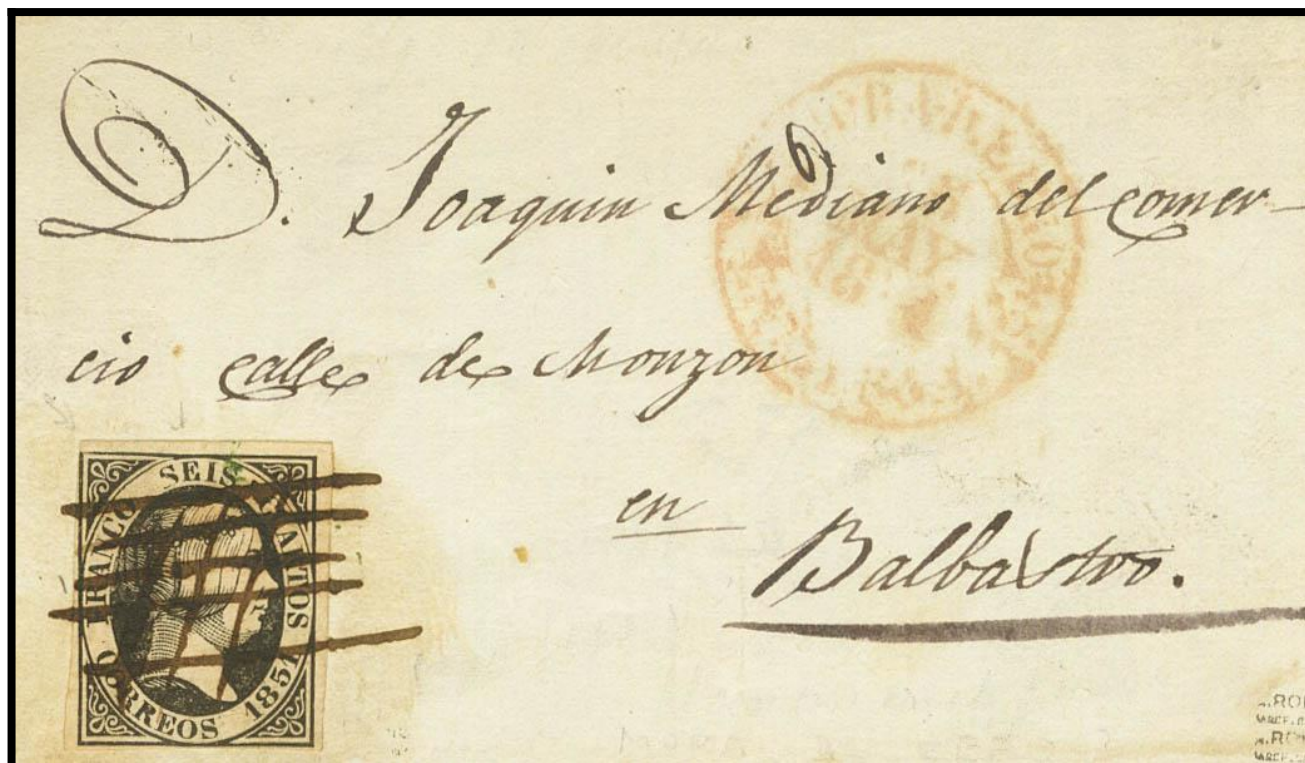 D. Joaquin Mediano del comer-
cio calle de Monzon
en
Balbastro.
FRANCO SEIS
CORREOS 1851